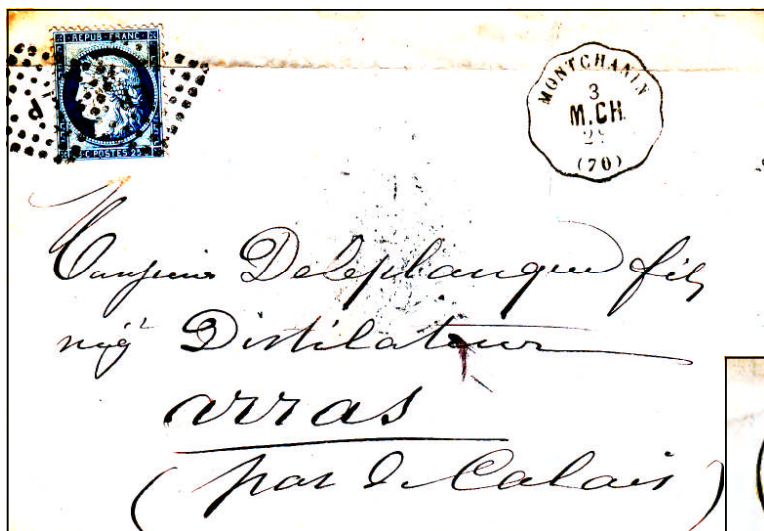 REPUB·FRANC·
C POSTES 25
MONTCHANIN
3
M.CH.
(70)
Monsieur Deleplanque fils
nég^t Distilateur
arras
(pas de Calais)